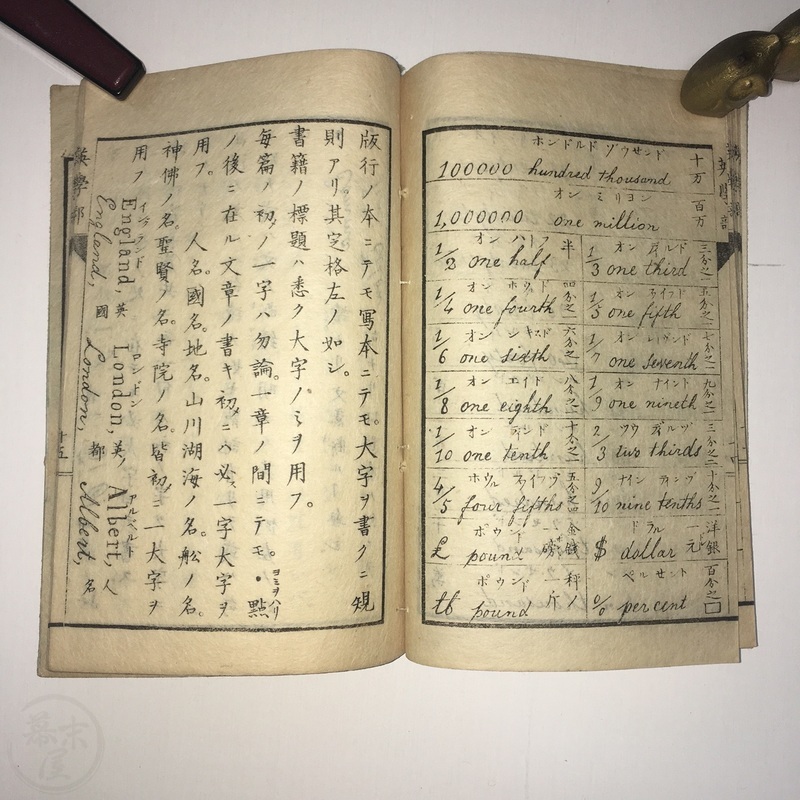 ホンドルド ゾウサンド
100000 hundred thousand 十万
オン ミリヨン
1,000000 one million 百万
オン ハーフ
1/2 one half 半
1/3 one third 三分之一
1/4 one fourth 四分之一
1/5 one fifth 五分之一
1/6 one sixth 六分之一
1/7 one seventh 七分之一
オン エイド
1/8 one eighth 八分之一
オン ナインド
1/9 one nineth 九分之一
オン テンド
1/10 one tenth 十分之一
2/3 two thirds 三分之二
4/5 four fifths 五分之四
9/10 nine tenths
ポウンド
£ pound 金銭
ドラル
$ dollar 洋銀一元
ポウンド
lb pound 秤ノ一斤
ペルセント
% percent 百分之□
版行ノ本ニテモ寫本ニテモ。大字ヲ書クニ規
則アリ。其定格左ノ如シ。
書籍ノ標題ハ悉ク大字ノミヲ用フ。
每篇ノ初ノ一字ハ勿論。一章ノ間ニテモ。・點
ヨミヲハリ
ノ後ニ在ル文章ノ書キ初ニハ必ス一字大字ヲ
用フ。 人名。國名。地名。山川湖海ノ名。舩ノ名。
神佛ノ名。聖賢ノ名。寺院ノ名。皆初ニ一大字ヲ
用フ
イングランド ロンドン アルベルト
England 英 London, 英ノ Albert, 人
England, 國 London, 都 Albert, 名
英學
十五
幕末屋